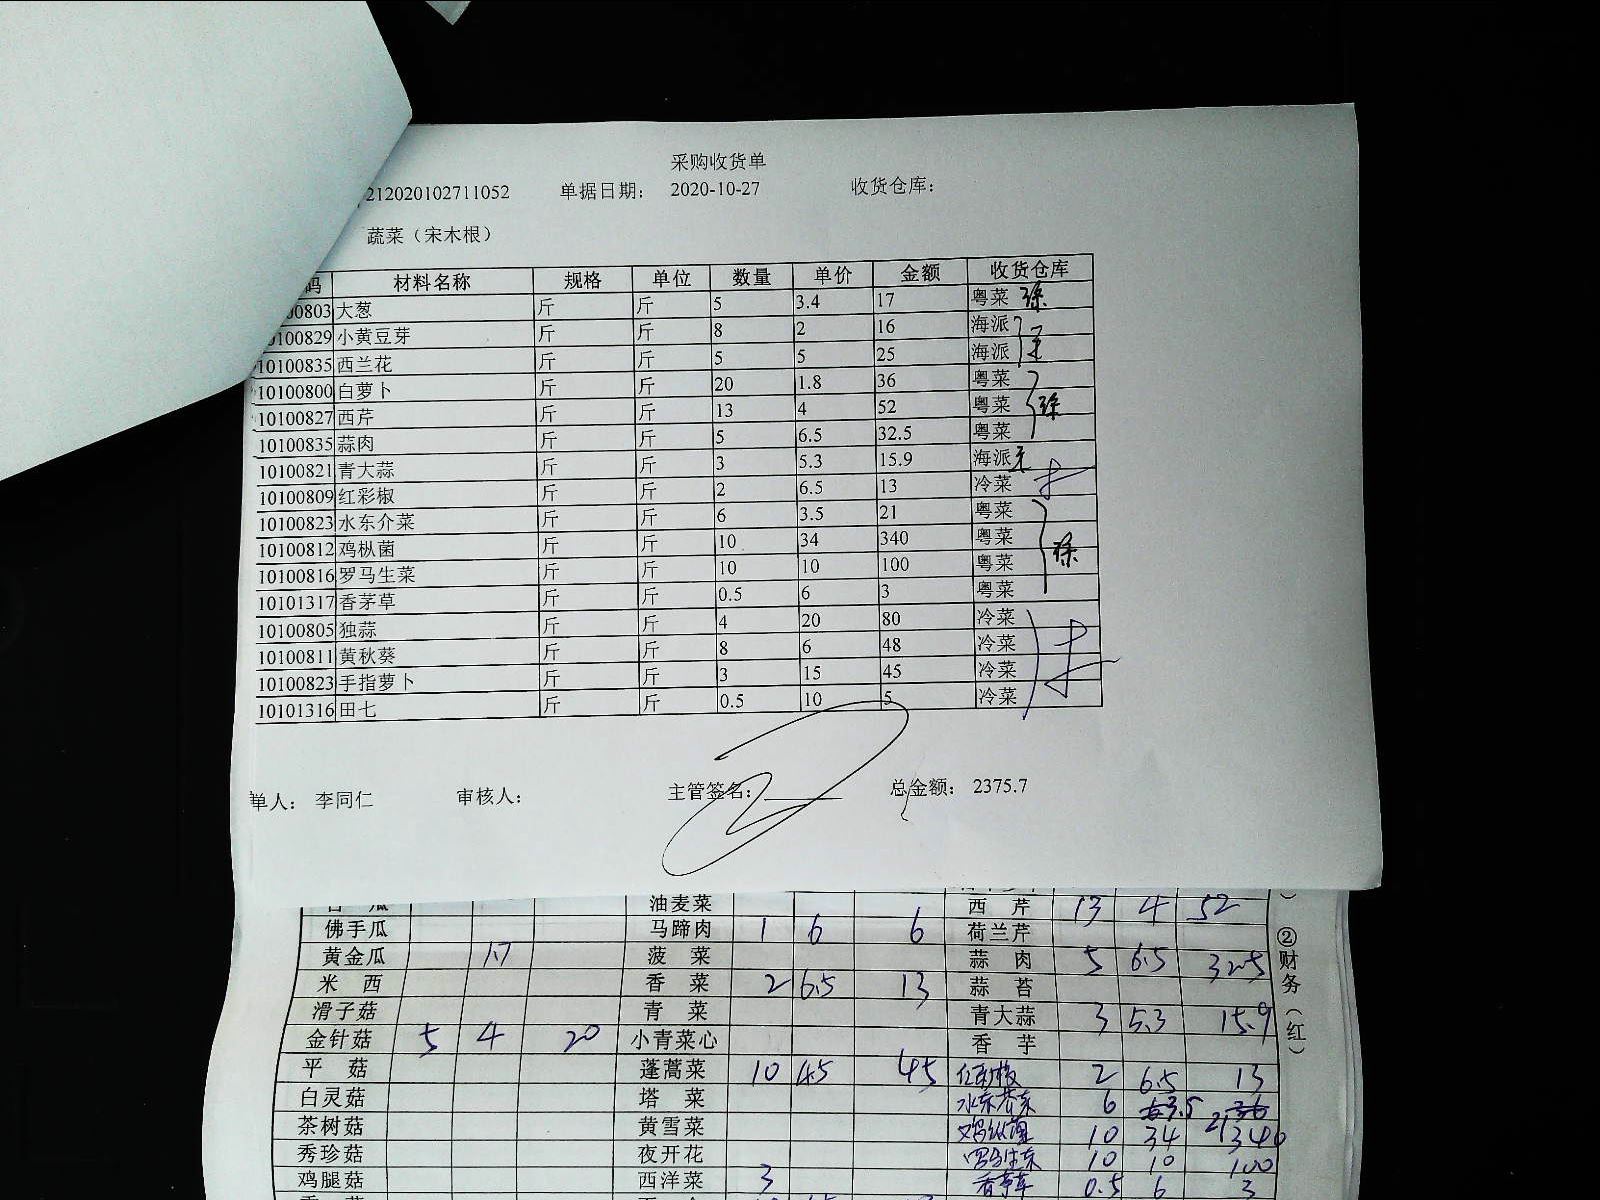 采购收货单
212020102711052 单据日期: 2020-10-27 收货仓库:
蔬菜（宋木根）
码 材料名称 规格 单位 数量 单价 金额 收货仓库
00803 大葱 斤 斤 5 3.4 17 粤菜 徐
0100829 小黄豆芽 斤 斤 8 2 16 海派
10100835 西兰花 斤 斤 5 5 25 海派
10100800 白萝卜 斤 斤 20 1.8 36 粤菜
10100827 西芹 斤 斤 13 4 52 粤菜 徐
10100835 蒜肉 斤 斤 5 6.5 32.5 粤菜
10100821 青大蒜 斤 斤 3 5.3 15.9 海派
10100809 红彩椒 斤 斤 2 6.5 13 冷菜
10100823 水东介菜 斤 斤 6 3.5 21 粤菜
10100812 鸡枞菌 斤 斤 10 34 340 粤菜 徐
10100816 罗马生菜 斤 斤 10 10 100 粤菜
10101317 香茅草 斤 斤 0.5 6 3 粤菜
10100805 独蒜 斤 斤 4 20 80 冷菜
10100811 黄秋葵 斤 斤 8 6 48 冷菜
10100823 手指萝卜 斤 斤 3 15 45 冷菜
10101316 田七 斤 斤 0.5 10 5 冷菜
单人: 李同仁 审核人: 主管签名: 总金额: 2375.7
油麦菜 西芹 13 4 52
佛手瓜 马蹄肉 1 6 6 荷兰芹
黄金瓜 17 菠菜 蒜肉 5 6.5 32.5
米西 香菜 2 6.5 13 蒜苔
滑子菇 青菜 青大蒜 3 5.3 15.9
金针菇 5 4 20 小青菜心 香芋
平菇 蓬蒿菜 10 4.5 45 红彩椒 2 6.5 13
白灵菇 塔菜 水东芥菜 6 3.5 21
茶树菇 黄雪菜 鸡枞菌 10 34 340
秀珍菇 夜开花 罗马生菜 10 10 100
鸡腿菇 西洋菜 3 香茅草 0.5 6 3
②财务（红）